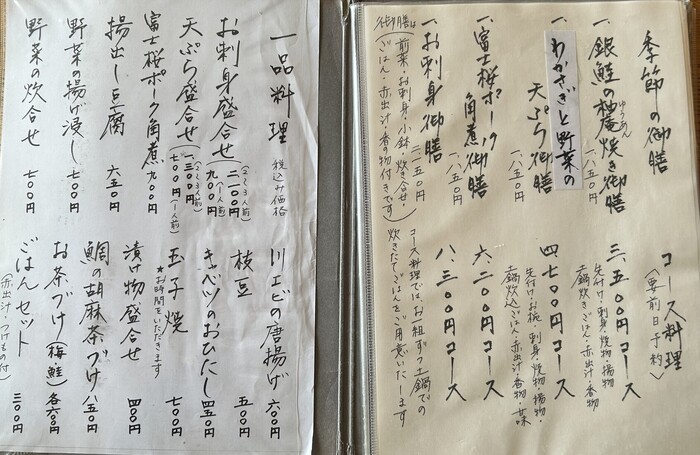 季節の御膳
一、銀鮭の柚庵焼き御膳
ゆうあん
一、八五〇円
一、わかさぎと野菜の
天ぷら御膳
一、八五〇円
一、富士桜ポーク
角煮御膳
一、八五〇円
一、お刺身御膳
二、一五〇円
御膳は
前菜・お刺身・小鉢・炊き合せ・
ごはん・赤出汁・香の物付きです
コース料理
(要前日予約)
三、五〇〇円コース
先付け・刺身・焼物・揚物
土鍋炊きごはん・赤出汁・香物
四、七〇〇円コース
先付け・お椀・刺身・焼物・揚物・
土鍋炊込ごはん・赤出汁・香物・甘味
六、二〇〇円コース
八、三〇〇円コース
コース料理では、お一組ずつ土鍋での
炊きたてごはんをご用意いたします
一品料理
税込み価格
お刺身盛合せ
(2〜3人前)
二、一〇〇円
九〇〇円
(1人前)
天ぷら盛合せ
(2〜3人前)
一、三〇〇円
七〇〇円(1人前)
富士桜ポーク角煮
九〇〇円
揚出し豆腐
六五〇円
野菜の揚げ浸し
七〇〇円
野菜の炊合せ
七〇〇円
川エビの唐揚げ
六〇〇円
枝豆
五〇〇円
キャベツのおひたし
四五〇円
玉子焼
七〇〇円
★お時間をいただきます
漬け物盛合せ
四〇〇円
鯛の胡麻茶づけ
八五〇円
お茶づけ(梅・鮭)
各六〇〇円
ごはんセット
三〇〇円
(赤出汁・つけもの付)